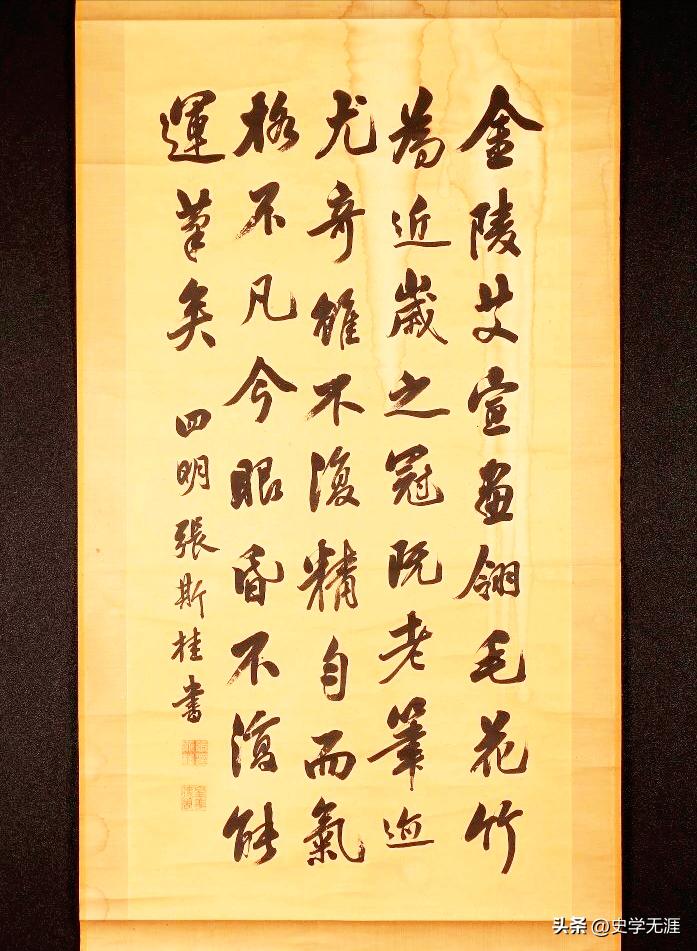 金陵艾宣畫翎毛花竹
為近歲之冠既老筆迹
尤奇雖不復精勻而氣
格不凡今眼昏不復能
運筆矣 四明張斯桂書
头条 @史学无涯